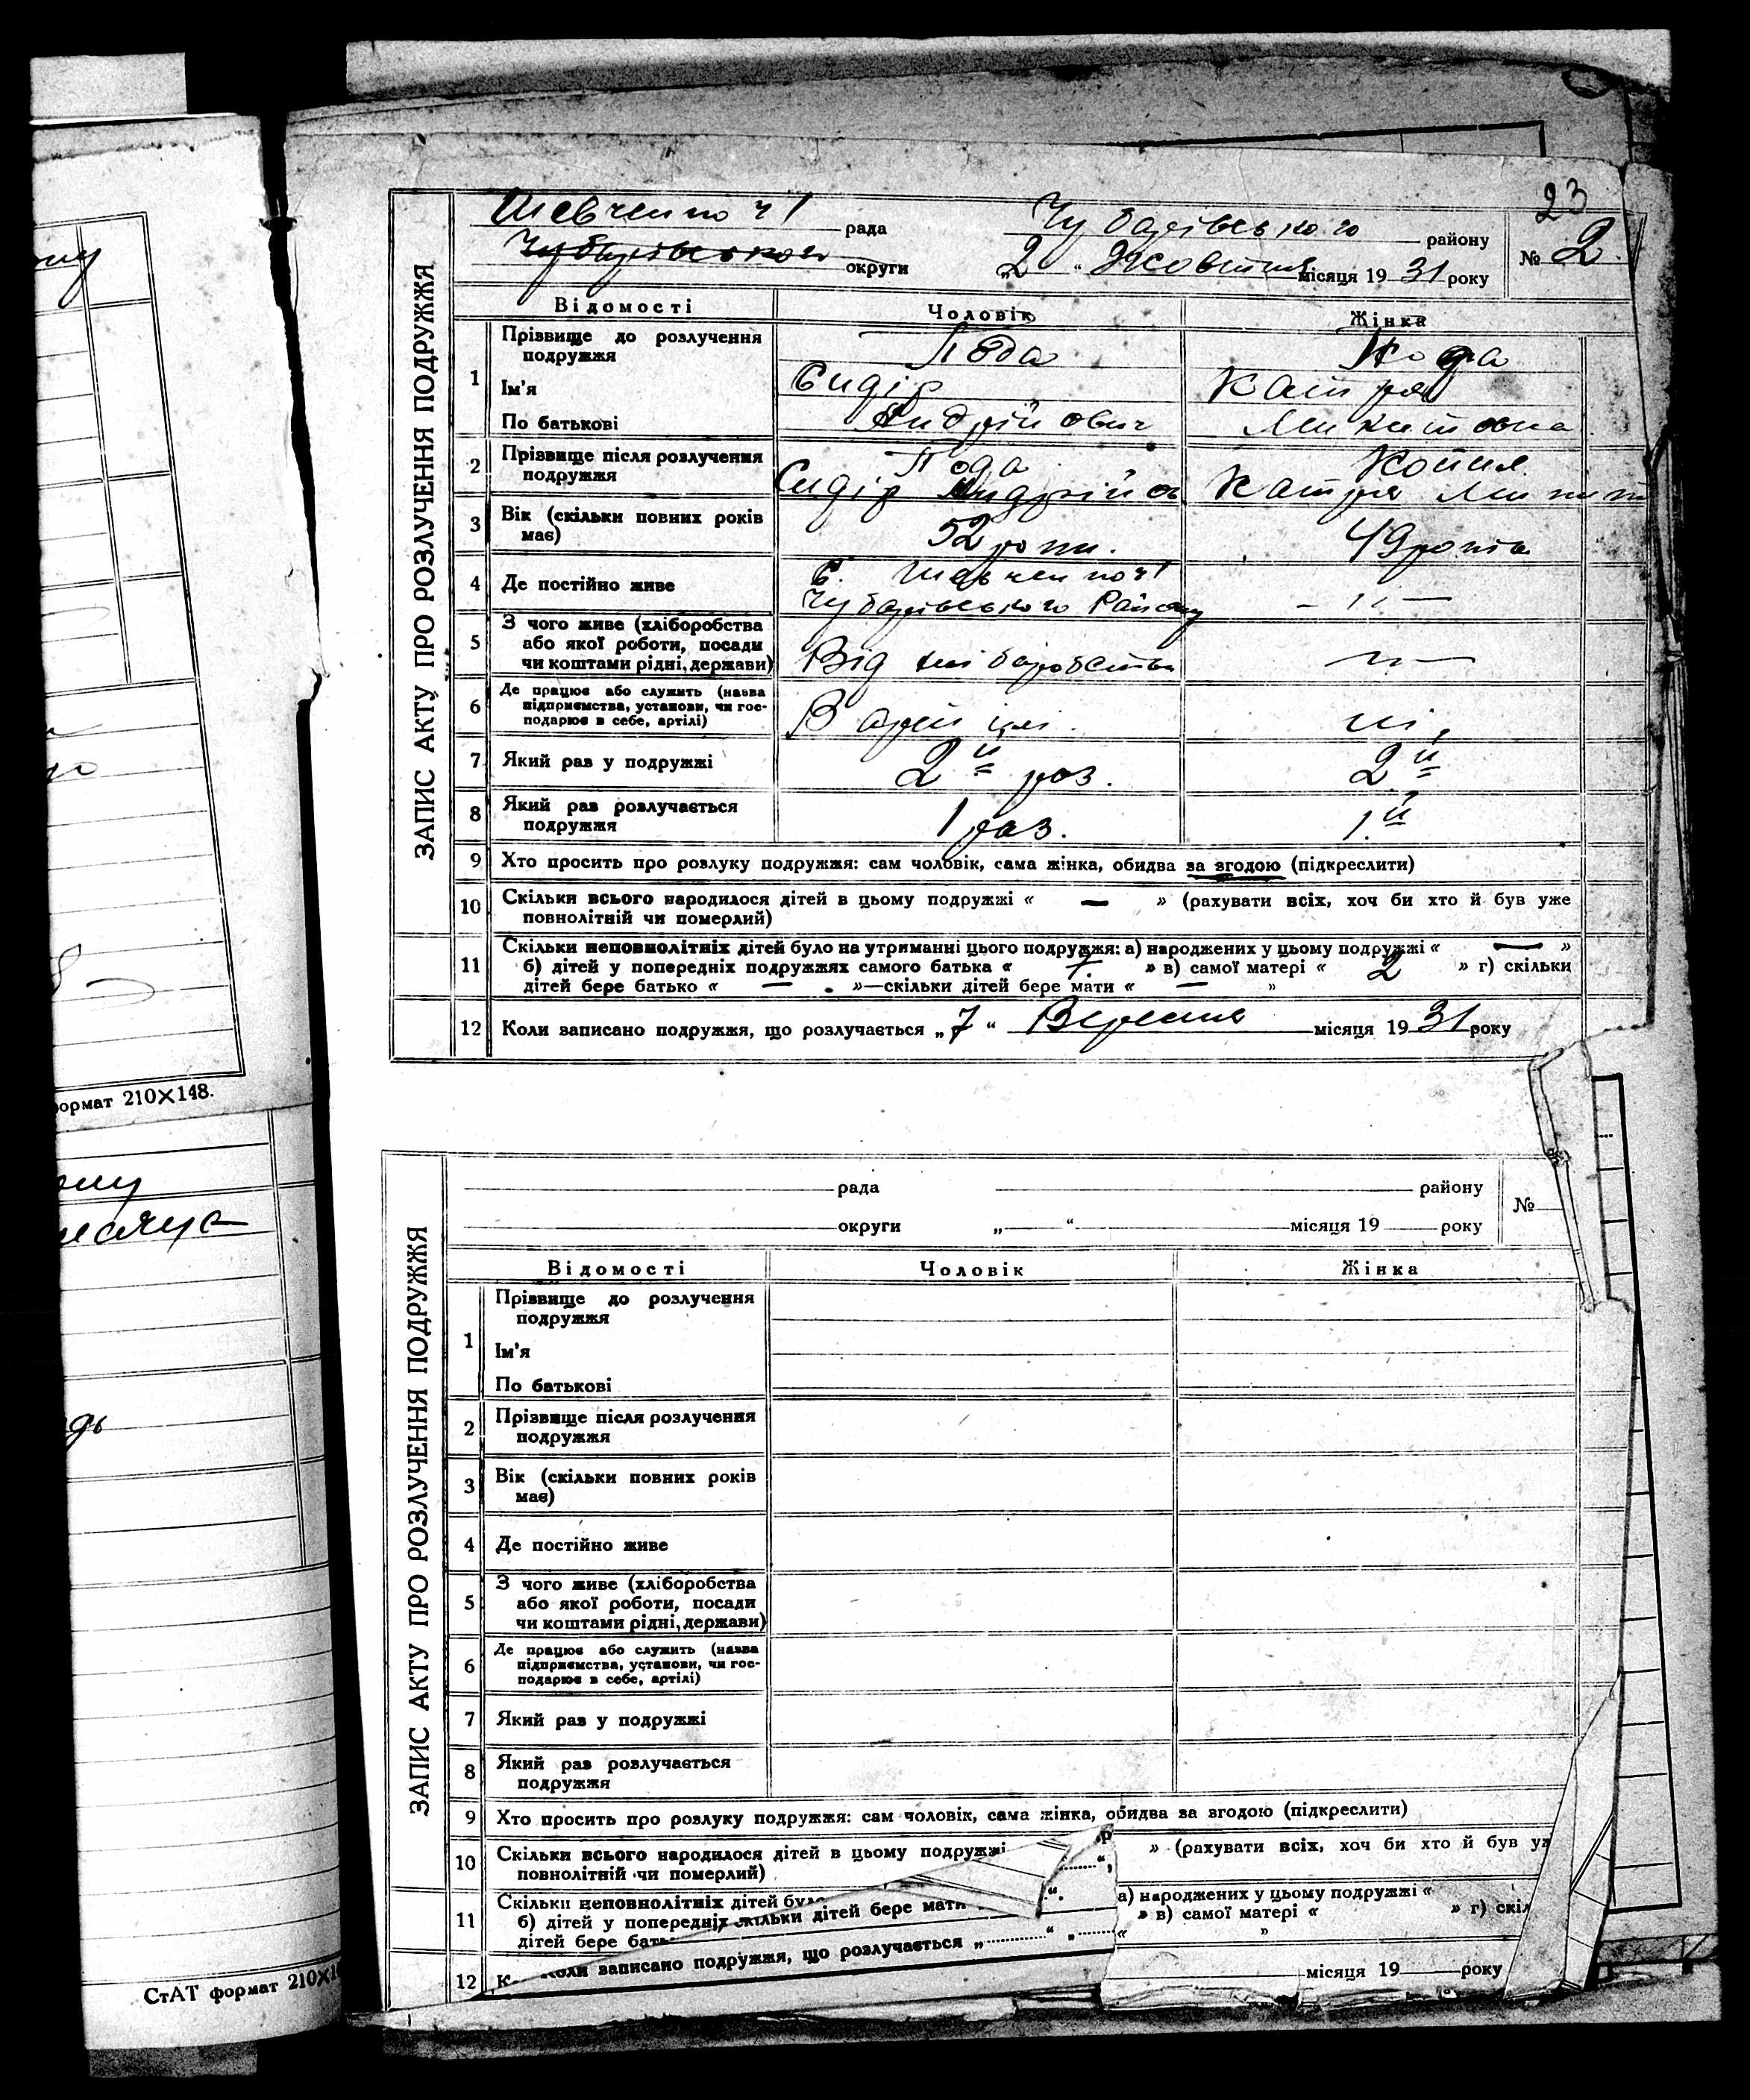 23
ЗАПИС АКТУ ПРО РОЗЛУЧЕННЯ ПОДРУЖЖЯ
Шевченко ч 1 рада Чубарівського району № 2.
Чубарівського округи „2“ Жовтня місяця 1931 року
Відомості Чоловік Жінка
1 Прізвище до розлучення подружжя Пода Пода
Ім'я Сидір Катря
По батькові Андрійович Микитовна
2 Прізвище після розлучення Пода
подружжя Сидір Андрійов Катря Микит
3 Вік (скільки повних років має) 52 роки. 49 років
4 Де постійно живе С. Шевченко ч 1
Чубарівського Району – ״ —
5 З чого живе (хліборобства
або якої роботи, посади
чи коштами рідні, держави) Від хліборобства
6 Де працює або служить (назва
підприємства, установи, чи гос-
подарює в себе, артілі) В артілі. ні.
7 Який раз у подружжі 2й раз. 2й
8 Який раз розлучається
подружжя 1 раз. 1.й
9 Хто просить про розлуку подружжя: сам чоловік, сама жінка, обидва за згодою (підкреслити)
10 Скільки всього народилося дітей в цьому подружжі « — » (рахувати всіх, хоч би хто й був уже
повнолітній чи померлий)
11 Скільки неповнолітніх дітей було на утриманні цього подружжя: а) народжених у цьому подружжі « — »
б) дітей у попередніх подружжях самого батька « 7. » в) самої матері « 2 » г) скільки
дітей бере батько « — . »—скільки дітей бере мати « — »
12 Коли записано подружжя, що розлучається „7“ Вересня місяця 1931 року
ЗАПИС АКТУ ПРО РОЗЛУЧЕННЯ ПОДРУЖЖЯ
рада району №
округи „ “ місяця 19 року
Відомості Чоловік Жінка
1 Прізвище до розлучення
подружжя
Ім'я
По батькові
2 Прізвище після розлучення
подружжя
3 Вік (скільки повних років
має)
4 Де постійно живе
5 З чого живе (хліборобства
або якої роботи, посади
чи коштами рідні, держави)
6 Де працює або служить (назва
підприємства, установи, чи гос-
подарює в себе, артілі)
7 Який раз у подружжі
8 Який раз розлучається
подружжя
9 Хто просить про розлуку подружжя: сам чоловік, сама жінка, обидва за згодою (підкреслити)
10 Скільки всього народилося дітей в цьому подружжі » (рахувати всіх, хоч би хто й був уж
повнолітній чи померлий)
11 Скільки неповнолітніх дітей було а) народжених у цьому подружжі «
б) дітей у попередніх » в) самої матері « » г) скіл
дітей бере бать «
скільки дітей бере мати
12 Коли записано подружжя, що розлучається „ “
місяця 19 року
формат 210×148.
СтАТ формат 210×1